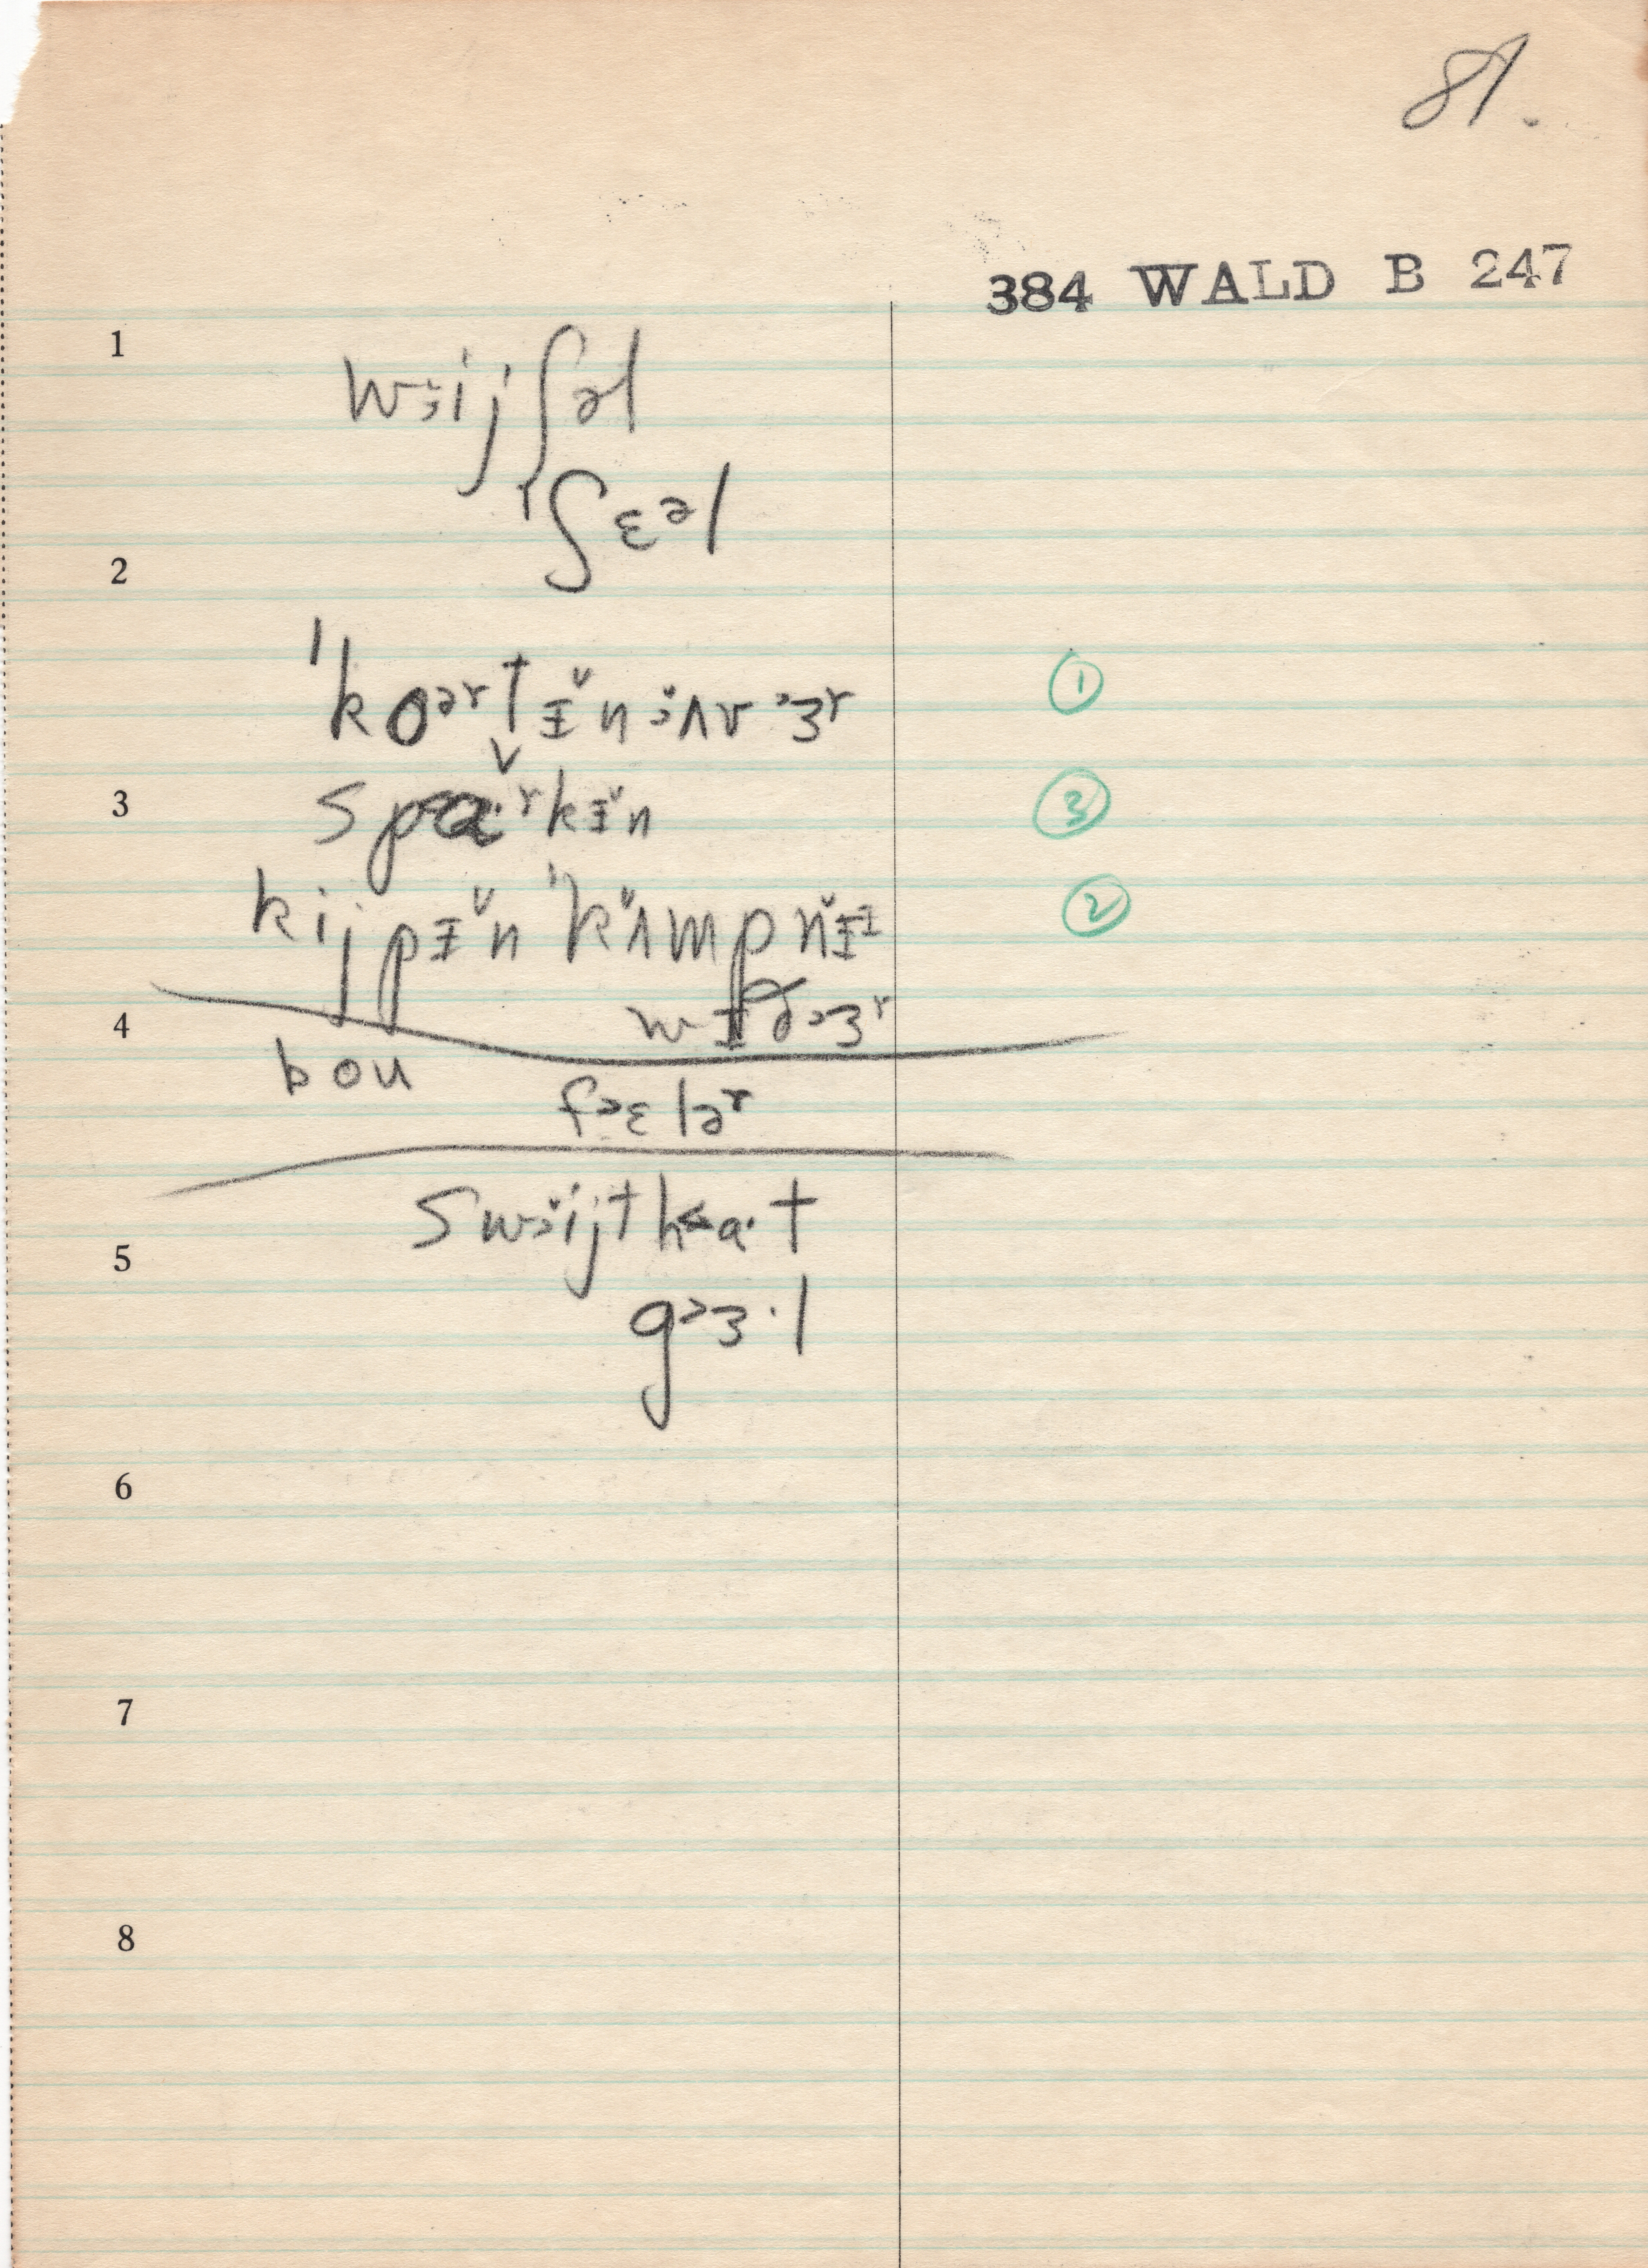 81.
384 WALD B 247
1
wɜijʃəl
ʃɛəl
2
ˈkoərtɪ̆nɜʌvɜr
①
3
spɑˑrkɪ̆n
③
kijpɪ̆n ˈkʌ̆mpnɪ̆ɪ
②
4
wɪð˃ɜr
bou
f˃ɛlər
swɜijthaˑt
5
g˃ɜˑl
6
7
8